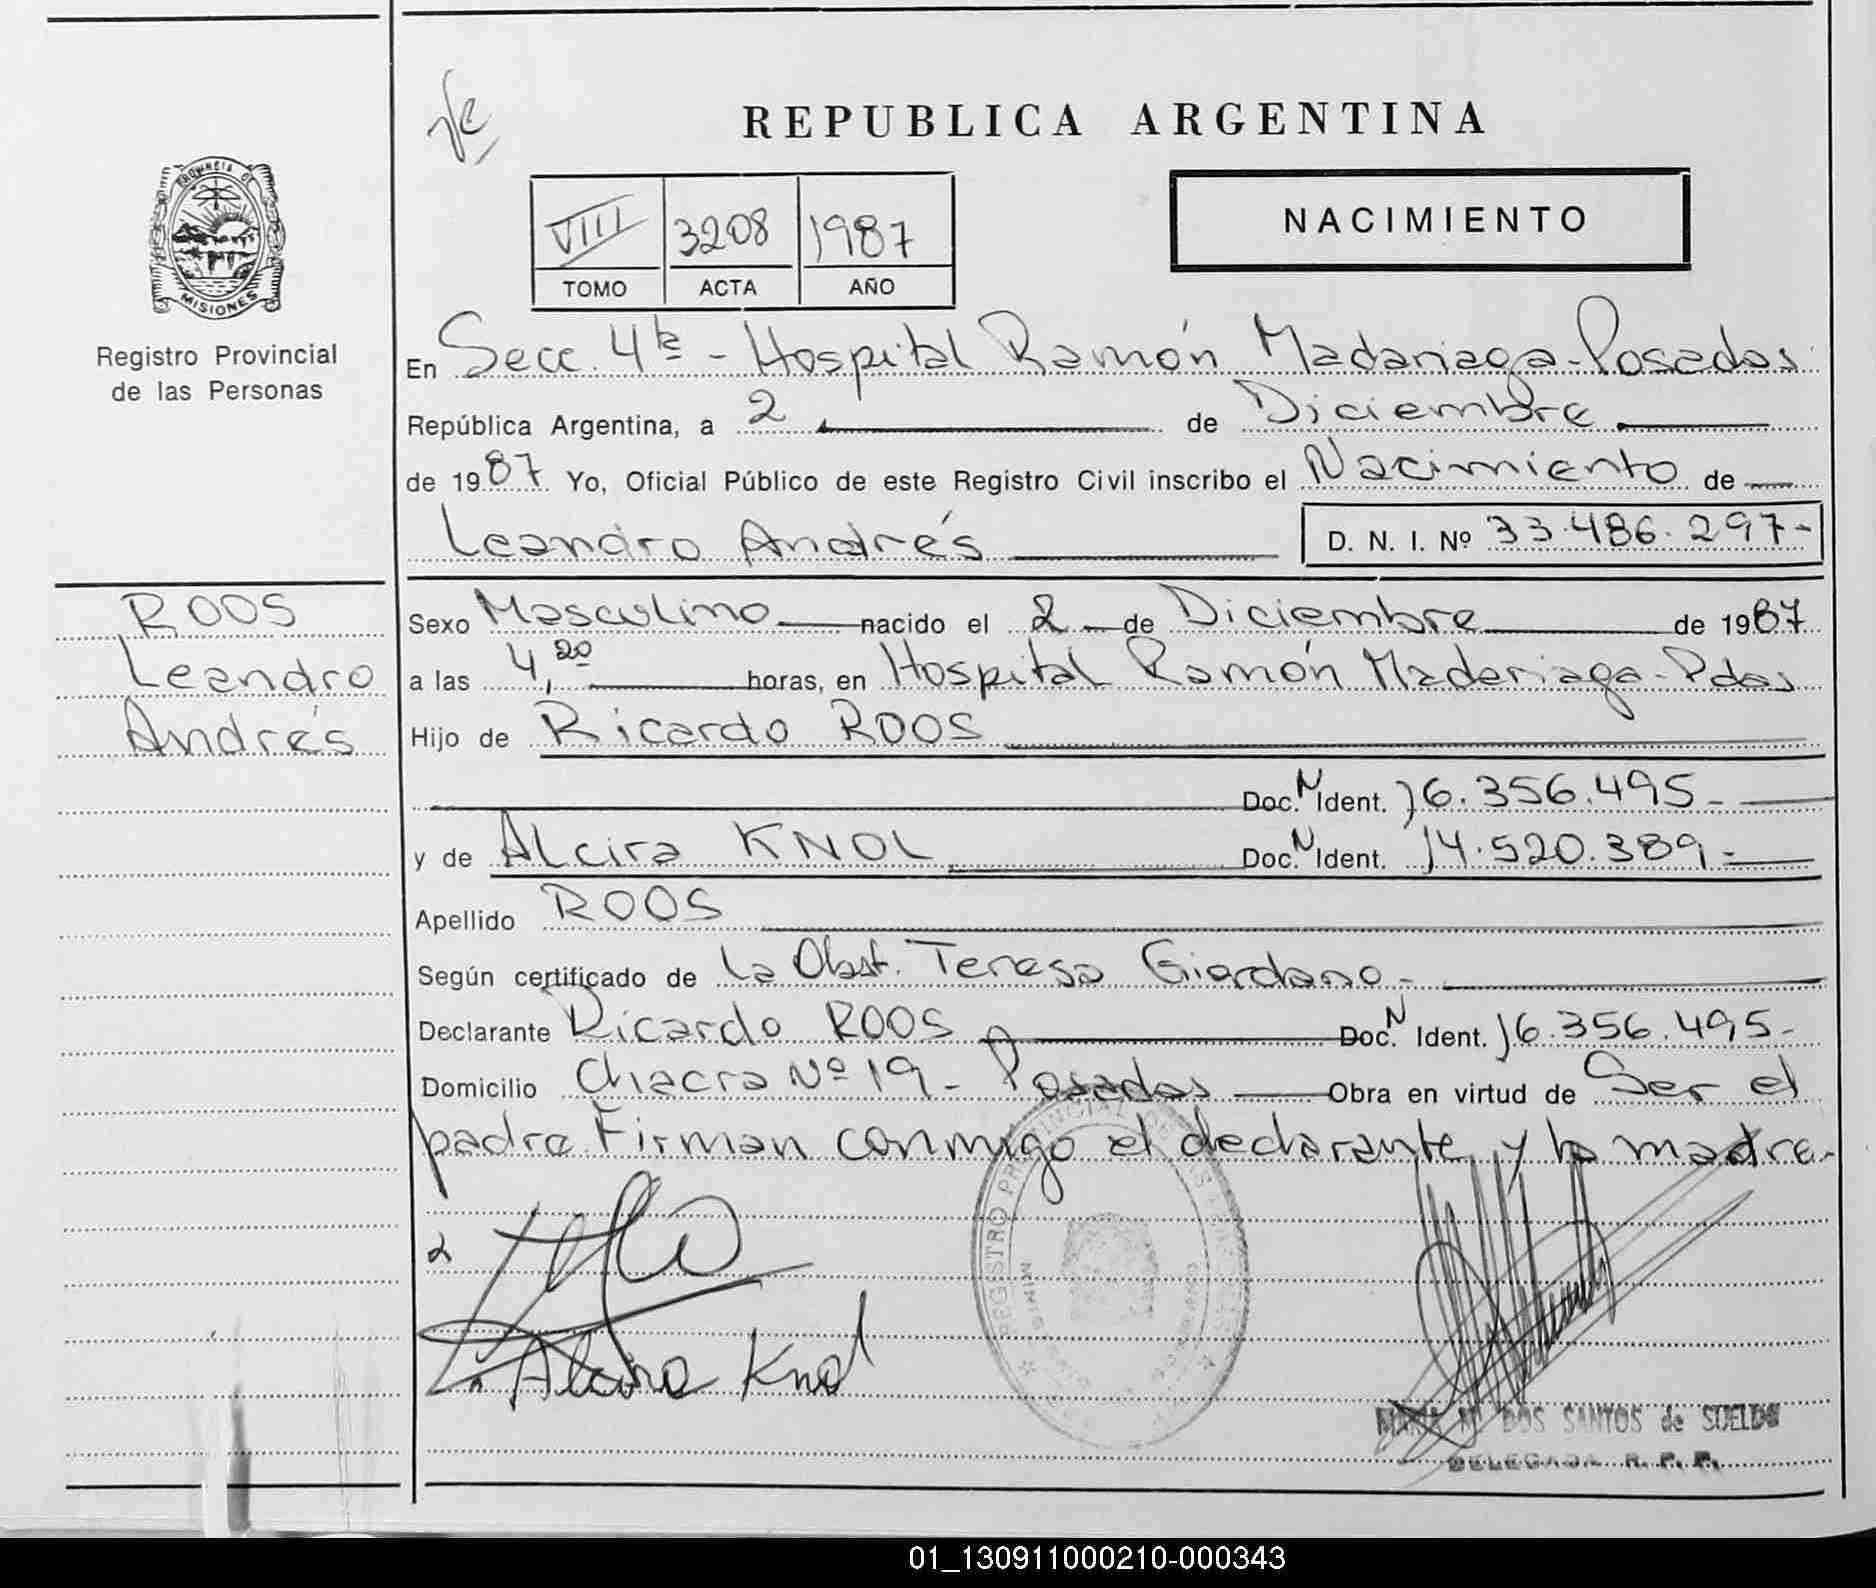 REPUBLICA ARGENTINA
PROVINCIA DE
MISIONES
Registro Provincial
de las Personas
VIII 3208 1987
TOMO ACTA AÑO
NACIMIENTO
En Secc. 4ta - Hospital Ramón Madariaga-Posadas
República Argentina, a 2 de Diciembre
de 1987 Yo, Oficial Público de este Registro Civil inscribo el Nacimiento de
Leandro Andrés D. N. I. Nº 33.486.297-
ROOS
Leandro
Andrés
Sexo Masculino nacido el 2 de Diciembre de 1987
a las 4,20 horas, en Hospital Ramón Madariaga-Pdas
Hijo de Ricardo ROOS
Doc. N Ident. 16.356.495-
y de Alcira KNOL Doc. N Ident. 14.520.389-
Apellido ROOS
Según certificado de la Obst. Teresa Giordano-
Declarante Ricardo ROOS Doc. N Ident. 16.356.495-
Domicilio Chacra Nº 19- Posadas Obra en virtud de Ser el
padre. Firman conmigo el declarante y la madre.-
REGISTRO PROVINCIAL DE LAS PERSONAS
Alcira Knol
MARIA M. DOS SANTOS de SUELDO
DELEGADA R. P. P.
01_130911000210-000343